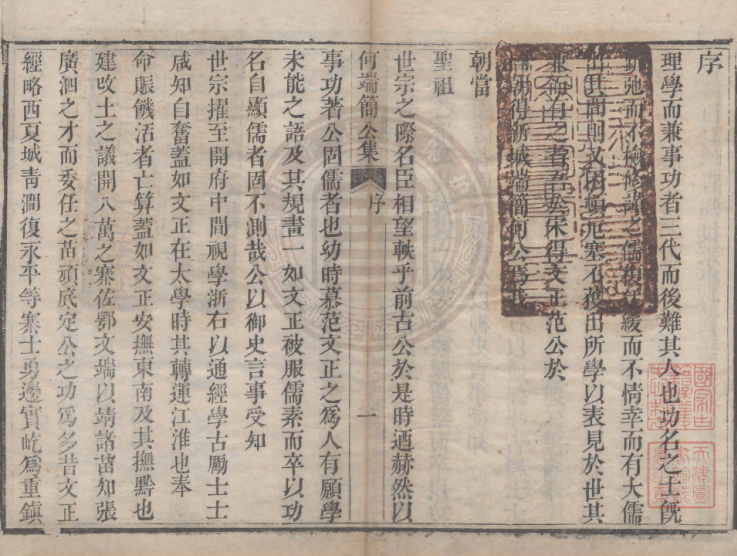 序
理學而兼事功者三代而後難其人也功名之士旣
弛而不檢修謹之儒復迂緩而不情幸而有大儒
出其間則又困頓阨塞不獲出所學以表見於世其
兼而有之者吾於宋得文正范公於
朝得新城端簡何公焉我
朝當
聖祖
世宗之際名臣相望軼乎前古公於是時迺赫然以
何端簡公集 序 一
事功著公固儒者也幼時慕范文正之爲人有願學
未能之語及其規畫一如文正被服儒素而卒以功
名自顯儒者固不測哉公以御史言事受知
世宗擢至開府中間視學浙右以通經學古勵士士
咸知自奮蓋如文正在太學時其轉運江淮也奉
命賑饑活者亡算蓋如文正安撫東南及其撫黔也
建改土之議開八萬之寨佐鄂文端以靖諸苗知張
廣泗之才而委任之苗頑底定公之功爲多昔文正
經略西夏城靑澗復永平等寨士勇邊實屹爲重鎮